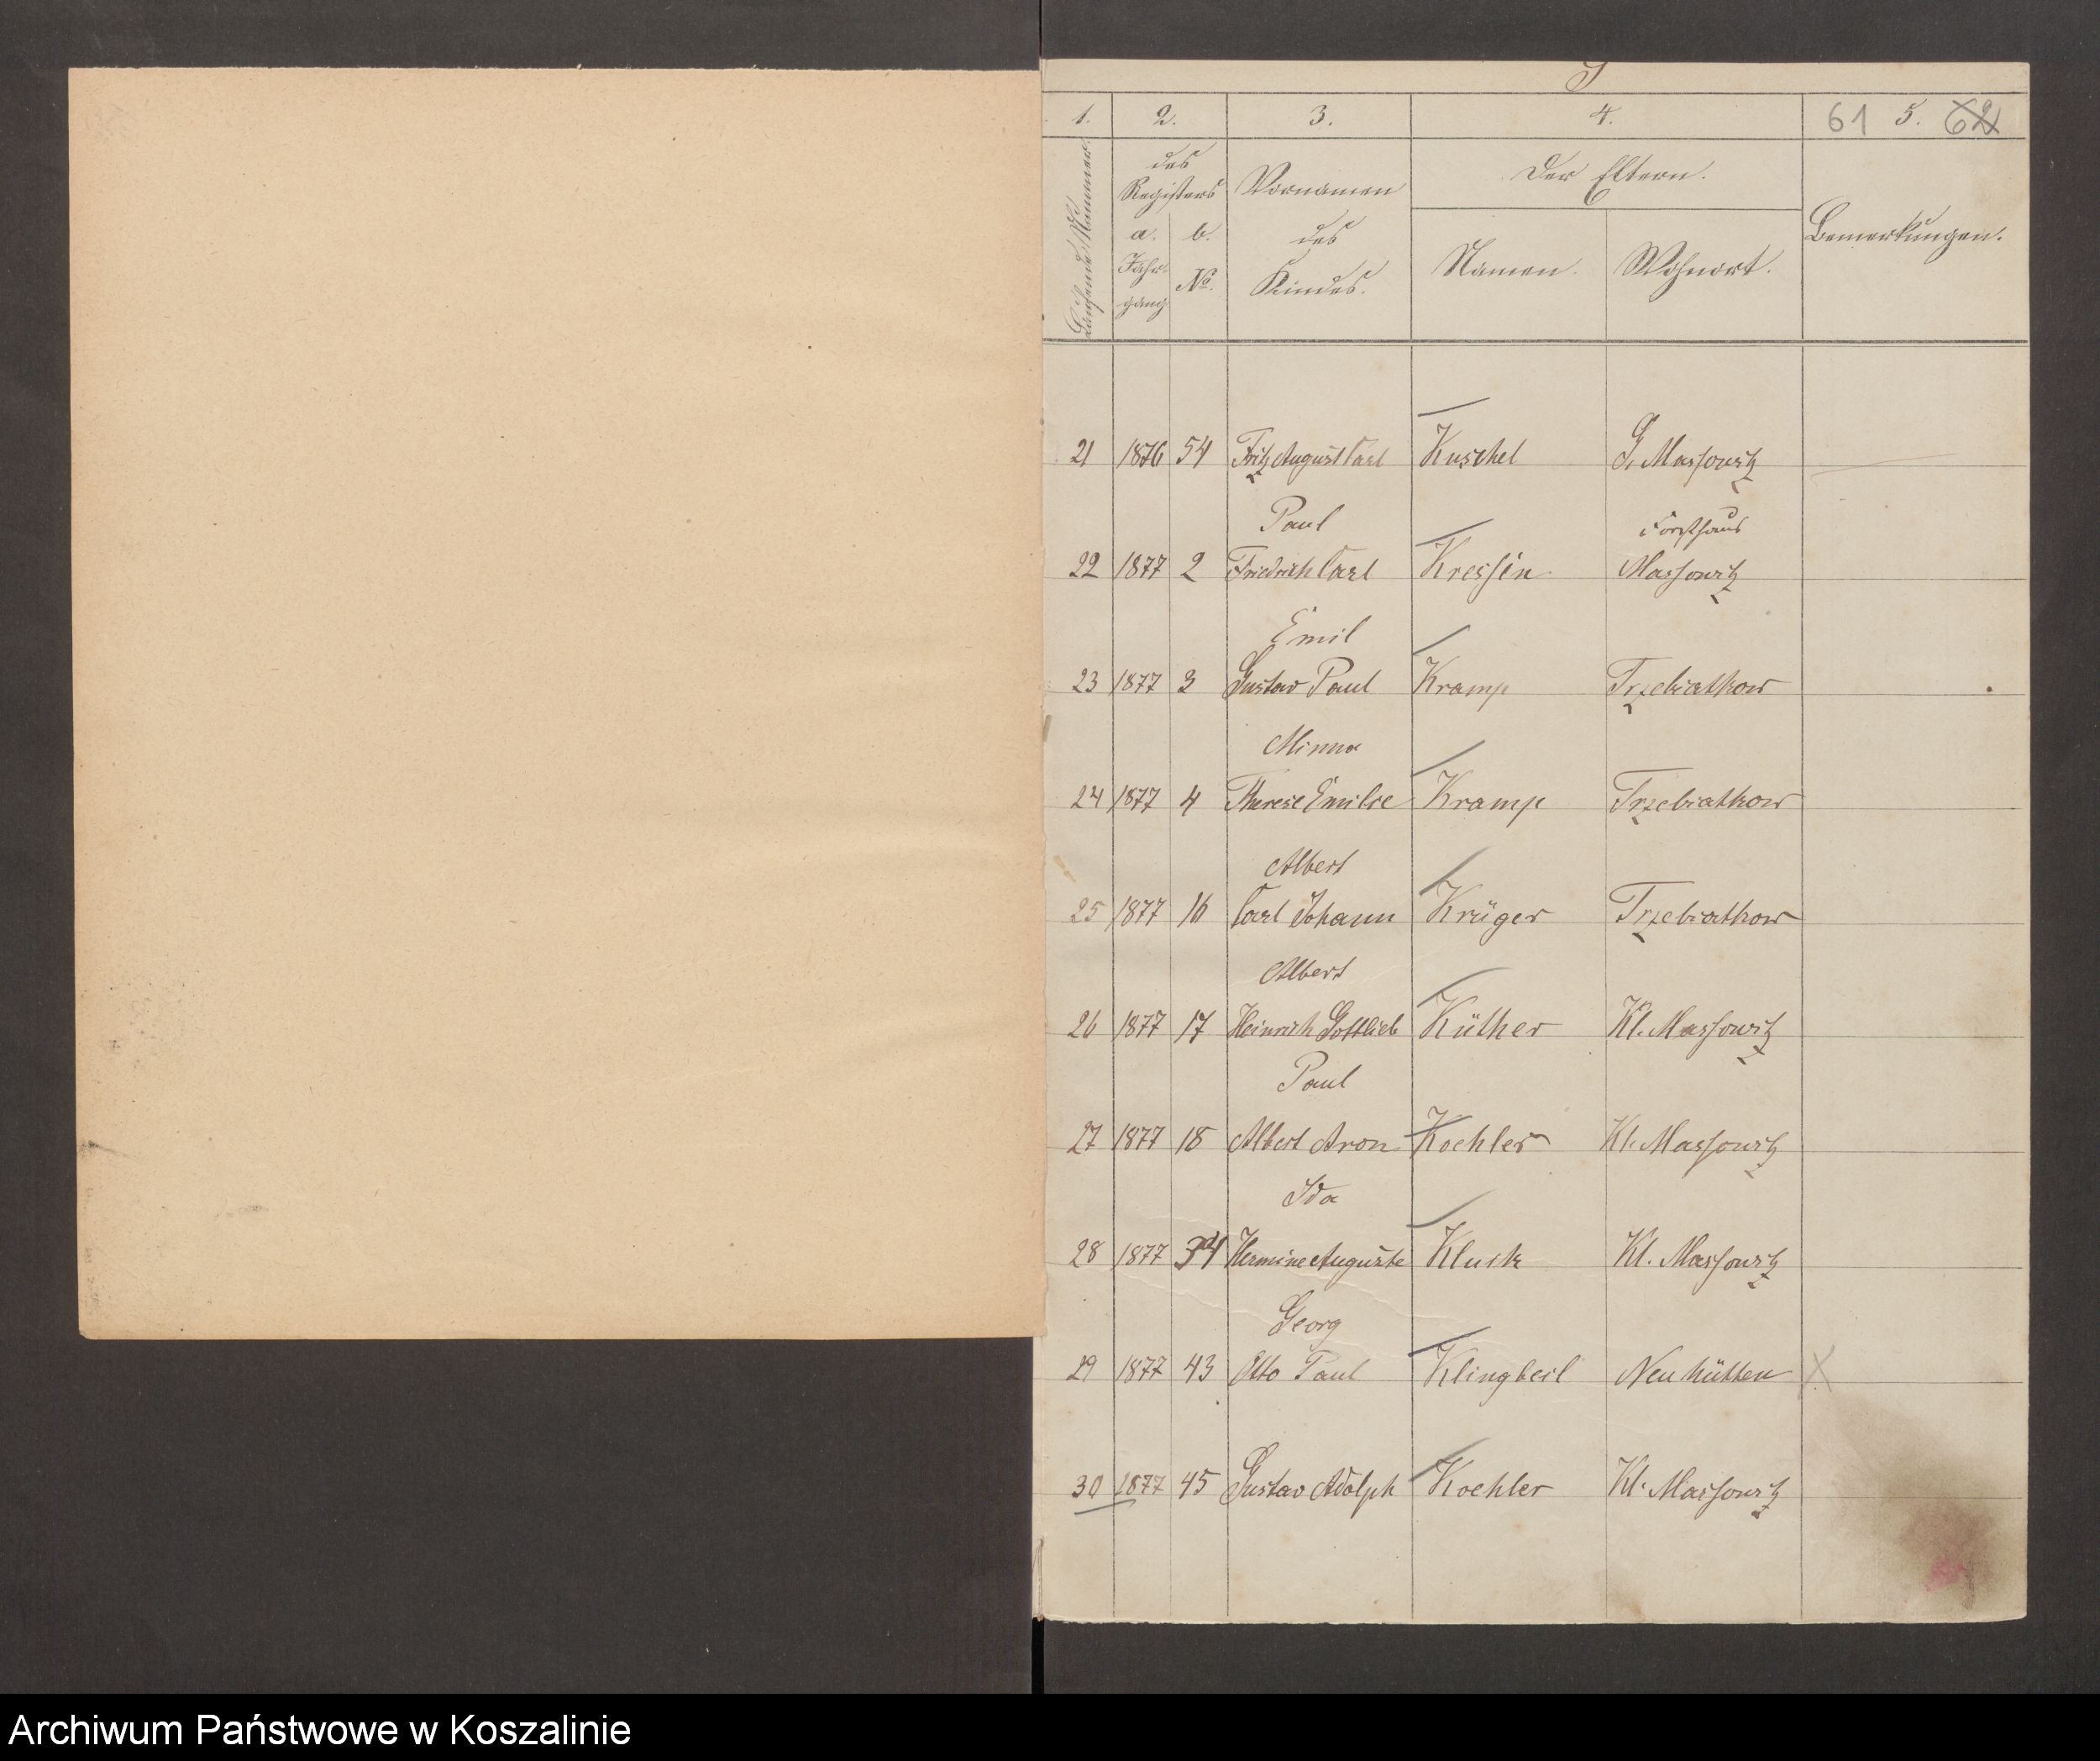 1. 2. 3. 4. 61 5. 62
Laufende Nummer.
des Registers
a. Jahrgang
b. No.
Vornamen des Kindes.
Der Eltern.
Namen. Wohnort.
Bemerkungen.
21 1876 54 Fritz August Carl Kuschel G. Massowitz
Paul Forsthaus
22 1877 2 Friedrich Carl Kressin Massowitz
Emil
23 1877 3 Gustav Paul Kramp Trzebiatkow
Minna
24 1877 4 Therese Emilie Kramp Trzebiatkow
Albert
25 1877 16 Carl Johann Krüger Trzebiatkow
Albert
26 1877 17 Heinrich Gottlieb Küther Kl. Massowitz
Paul
27 1877 18 Albert Aron Koehler Kl. Massowitz
Ida
28 1877 34 Hermine Auguste Kluck Kl. Massowitz
Georg
29 1877 43 Otto Paul Klingbeil Neu hütten X
30 1877 45 Gustav Adolph Koehler Kl. Massowitz
Archiwum Państwowe w Koszalinie